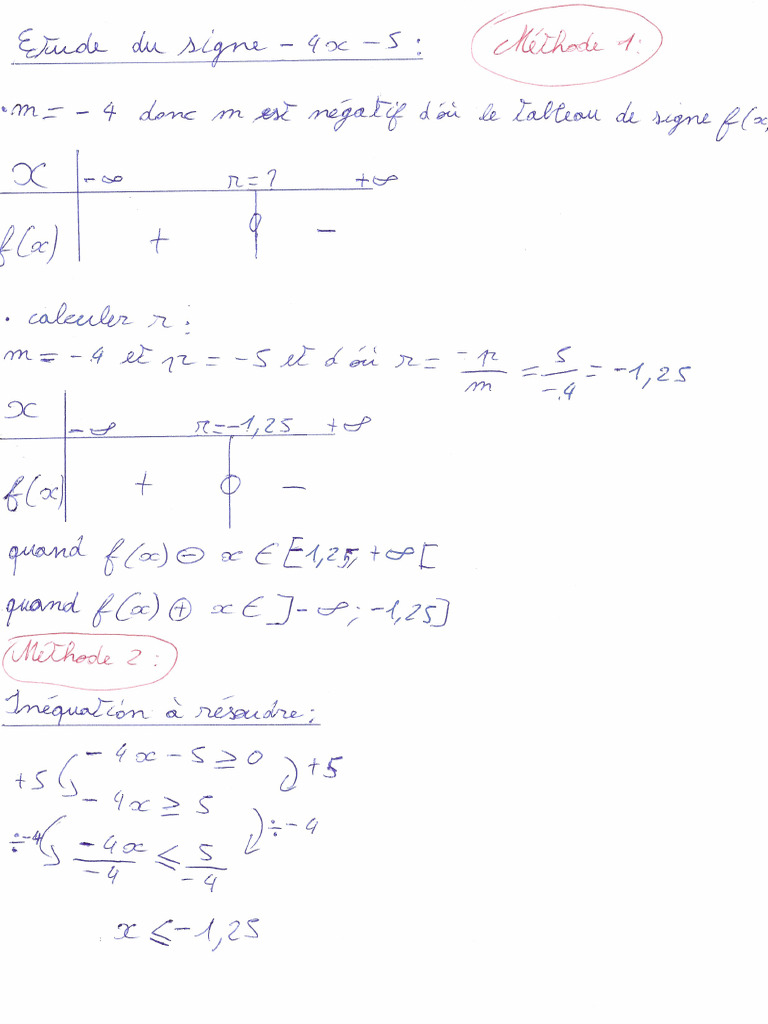 Etude du signe - 4x - 5 :
Méthode 1:
• m = - 4 donc m est négatif d'où le tableau de signe f(x)
x - ∞ r = ? + ∞
f(x) + 0 -
• calculer r :
m = - 4 et p = - 5 et d'où r = -p/m = 5/-4 = -1,25
x - ∞ r = -1,25 + ∞
f(x) + 0 -
quand f(x) ⊖ x ∈ [-1,25, +∞[
quand f(x) ⊕ x ∈ ]-∞ ; -1,25]
Méthode 2 :
Inéquation à résoudre :
+5 - 4x - 5 ≥ 0 +5
- 4x ≥ 5
÷-4 -4x/-4 ≤ 5/-4 ÷-4
x ≤ -1,25